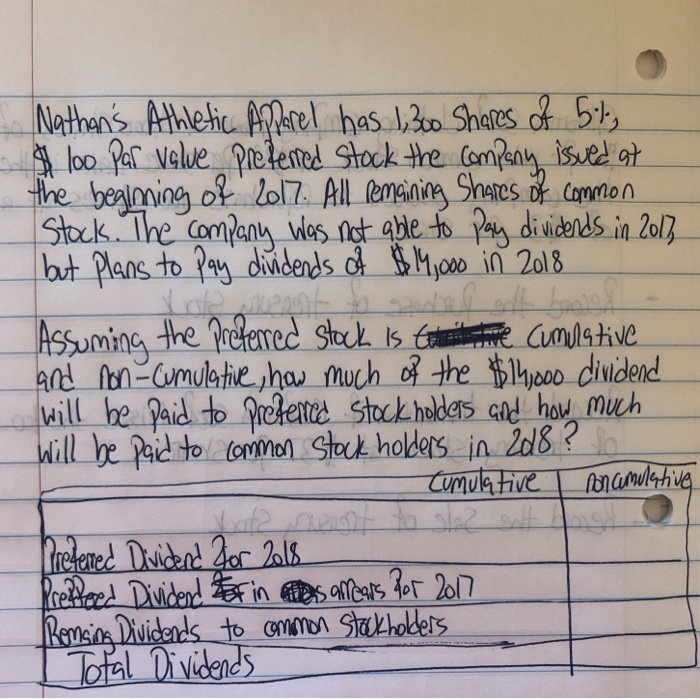 Nathan's Athletic Apparel has 1,300 shares of 5%,
$100 Par value preferred stock the company issued at
the beginning of 2017. All remaining shares of common
stock. The company was not able to pay dividends in 2017,
but plans to pay dividends of $14,000 in 2018
Assuming the preferred stock is cumulative
and non-cumulative, how much of the $14,000 dividend
will be paid to preferred stockholders and how much
will be paid to common stockholders in 2018?
Cumulative noncumulative
Preferred Dividend for 2018
Preffered Dividend in arrears for 2017
Remaing Dividends to common stockholders
Total Dividends